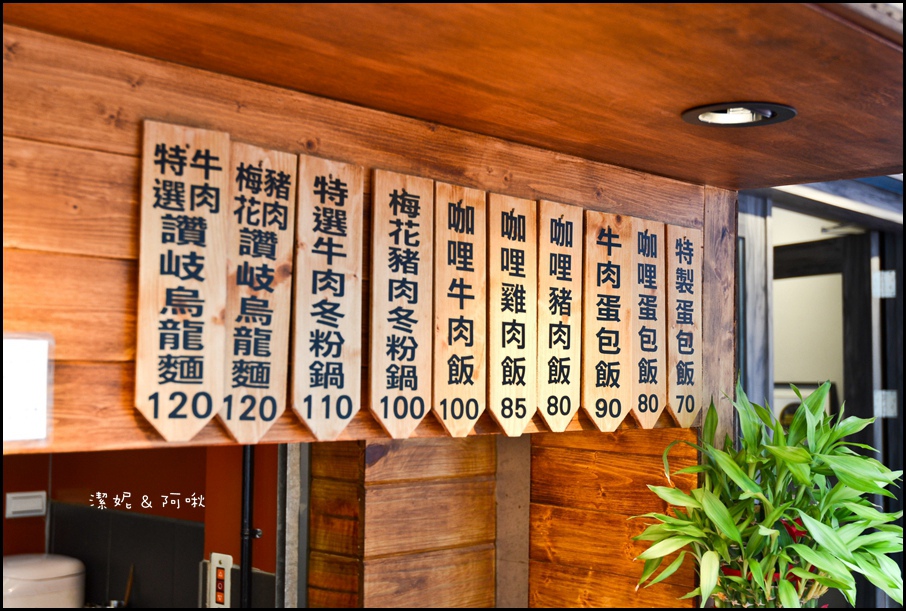 特選牛肉讚岐烏龍麵 120
梅花豬肉讚岐烏龍麵 120
特選牛肉冬粉鍋 110
梅花豬肉冬粉鍋 100
咖哩牛肉飯 100
咖哩雞肉飯 85
咖哩豬肉飯 80
牛肉蛋包飯 90
咖哩蛋包飯 80
特製蛋包飯 70
潔妮 & 阿啾